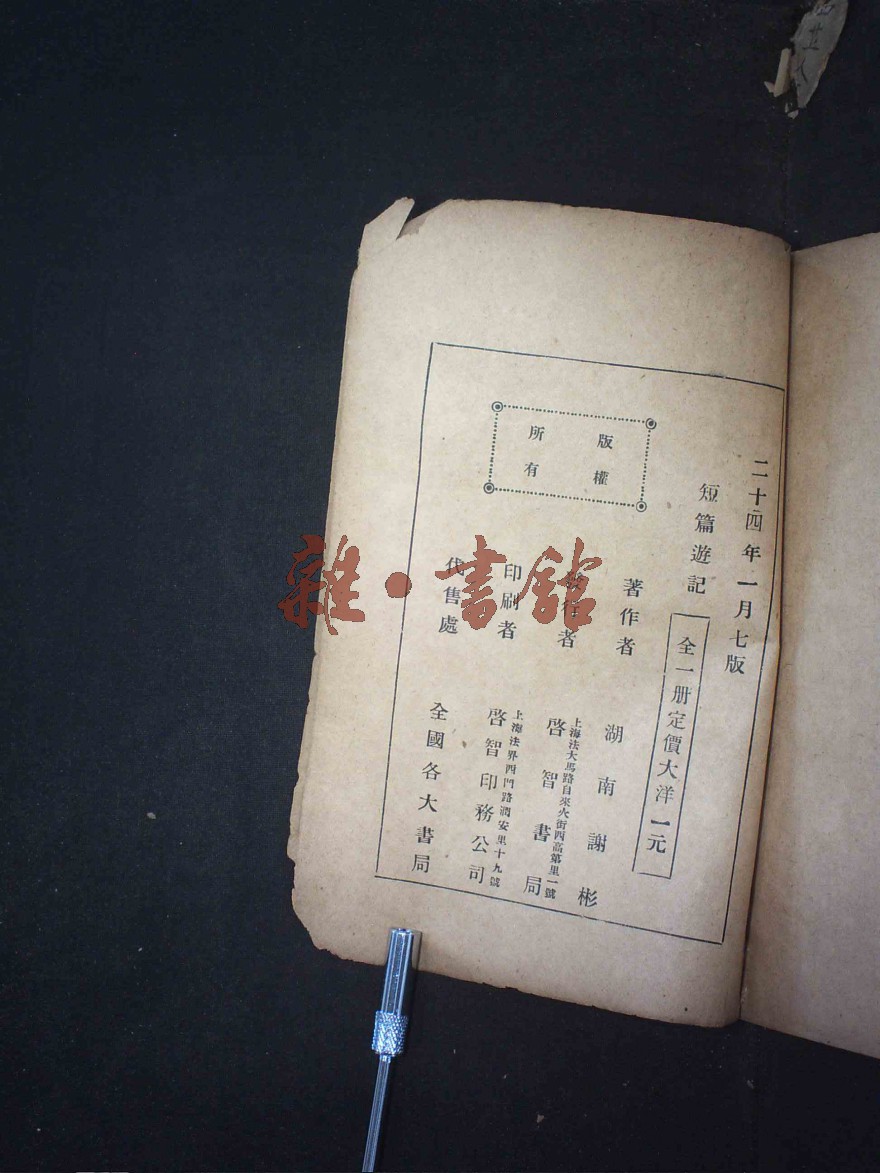 二十四年一月七版
短篇遊記
全一册定價大洋一元
著作者
湖南謝彬
發行者
上海法大馬路自來火街西高第里一號
啓智書局
印刷者
上海法界西門路潤安里十九號
啓智印務公司
代售處
全國各大書局
版權
所有
雜·書館